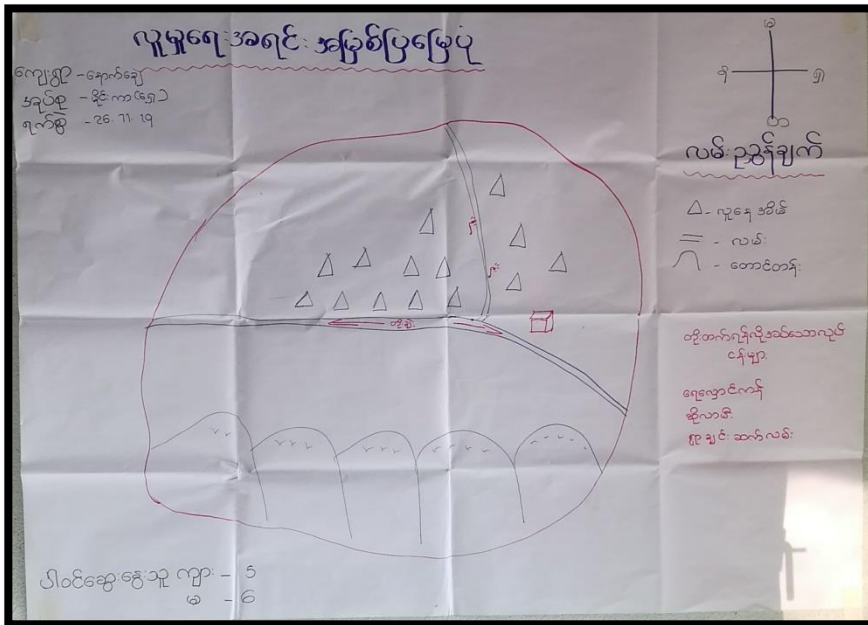 လူမှုရေးအရင်းအမြစ်ပြမြေပုံ
ကျေးရွာ - နောက်ချေ
အုပ်စု - နိုင်းကာ (ရှေ့)
ရက်စွဲ - 26.11.19
မ
ရှ
တ
လမ်းညွှန်ချက်
△ - လူနေအိမ်
= - လမ်း
∩ - တောင်တန်း
တိုးတက်ရန်လိုအပ်သောလုပ်
ငန်းများ
ရေလှောင်ကန်
ဆိုလာမီး
ရွာချင်းဆက်လမ်း
ပါဝင်ဆွေးနွေးသူ ကျား - 5
မ - 6